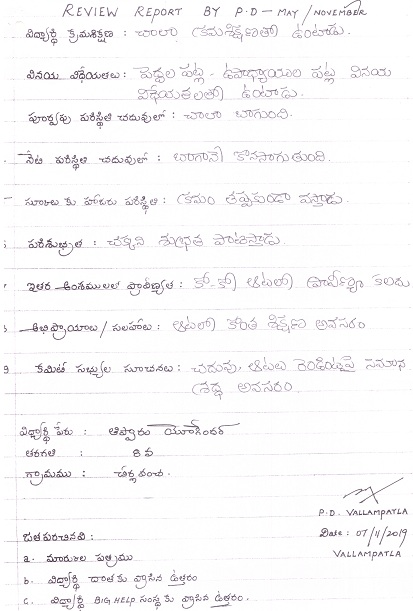 REVIEW REPORT BY P.D - MAY / NOVEMBER
విద్యార్థి క్రమశిక్షణ : చాలా క్రమశిక్షణతో ఉంటాడు.
వినయ విధేయతలు: పెద్దల పట్ల - ఉపాధ్యాయుల పట్ల వినయ
విధేయతలతో ఉంటాడు.
పూర్వపు పరిస్థితి చదువులో : చాలా బాగుంది.
నేటి పరిస్థితి చదువులో : బాగానే కొనసాగుతుంది.
స్కూలు కు హాజరు పరిస్థితి : క్రమం తప్పకుండా వస్తాడు.
పరిశుభ్రత : చక్కని శుభ్రత పాటిస్తాడు.
ఇతర అంశములలో ప్రావీణ్యత : కో-కో ఆటలో ప్రావీణ్యం కలదు
అభిప్రాయాలు / సలహాలు: ఆటలో కొంత శిక్షణ అవసరం
9 కమిటీ సభ్యుల సూచనలు: చదువు, ఆటలు రెండింటిపై సమాన
శ్రద్ధ అవసరం.
విద్యార్థి పేరు : యోగేందర్
తరగతి : 8 వ
గ్రామము :
P.D. VALLAMPATLA
Date : 07/11/2019
VALLAMPATLA
జతపరచినవి :
a. మార్కుల పత్రము
b. విద్యార్థి దాతకు వ్రాసిన ఉత్తరం
c. విద్యార్థి BIG HELP సంస్థకు వ్రాసిన ఉత్తరం.